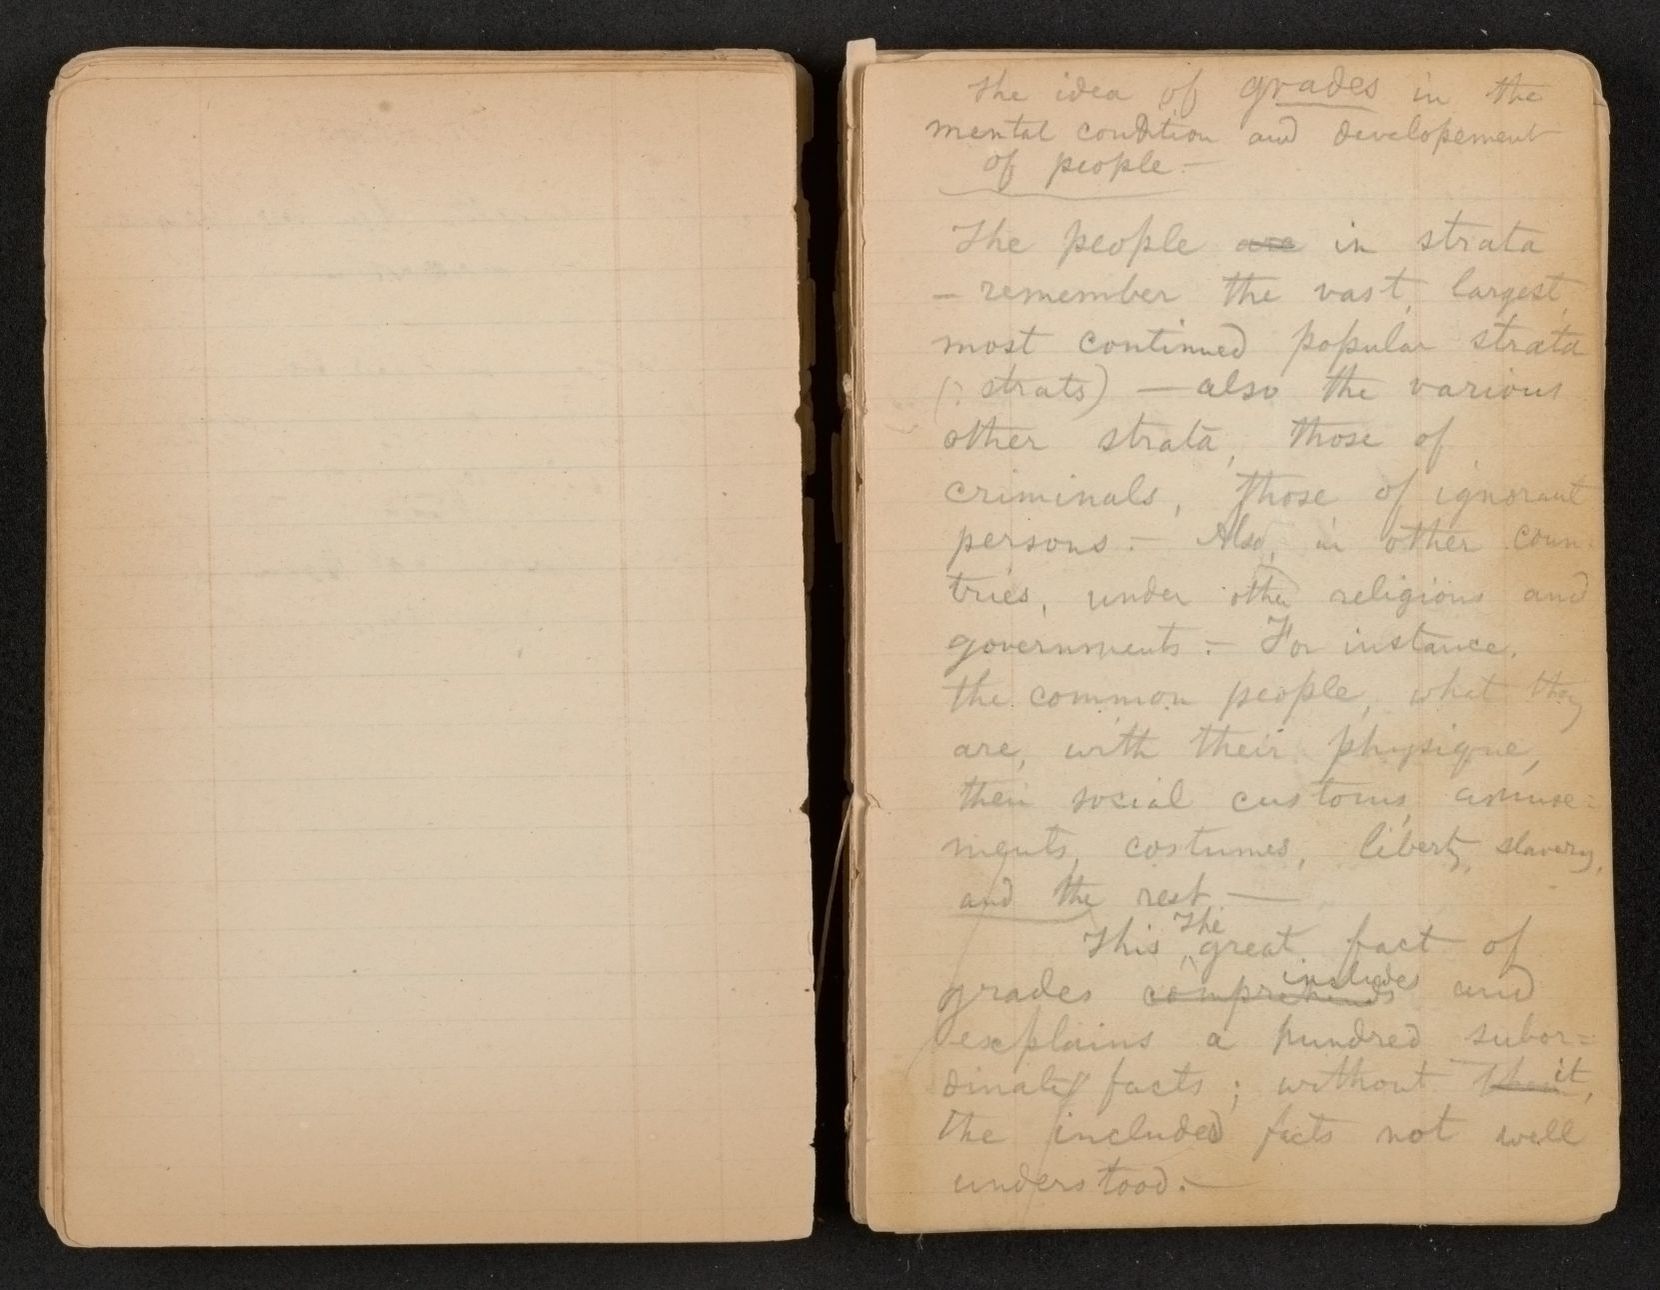 the idea of grades in the
mental condition and developement
of people.—
The people are in strata
— remember the vast, largest,
most continued popular strata
(? strats) — also the various
other strata, those of
criminals, those of ignorant
persons.— Also, in other coun-
tries, under other religions and
governments.— For instance,
the common people, what they
are, with their physique,
their social customs, amuse-
ments, costumes, liberty, slavery,
and the rest.—
This The great fact of
grades comprehends includes and
explains a hundred subor=
dinate facts; without it,
the included facts not well
understood.—